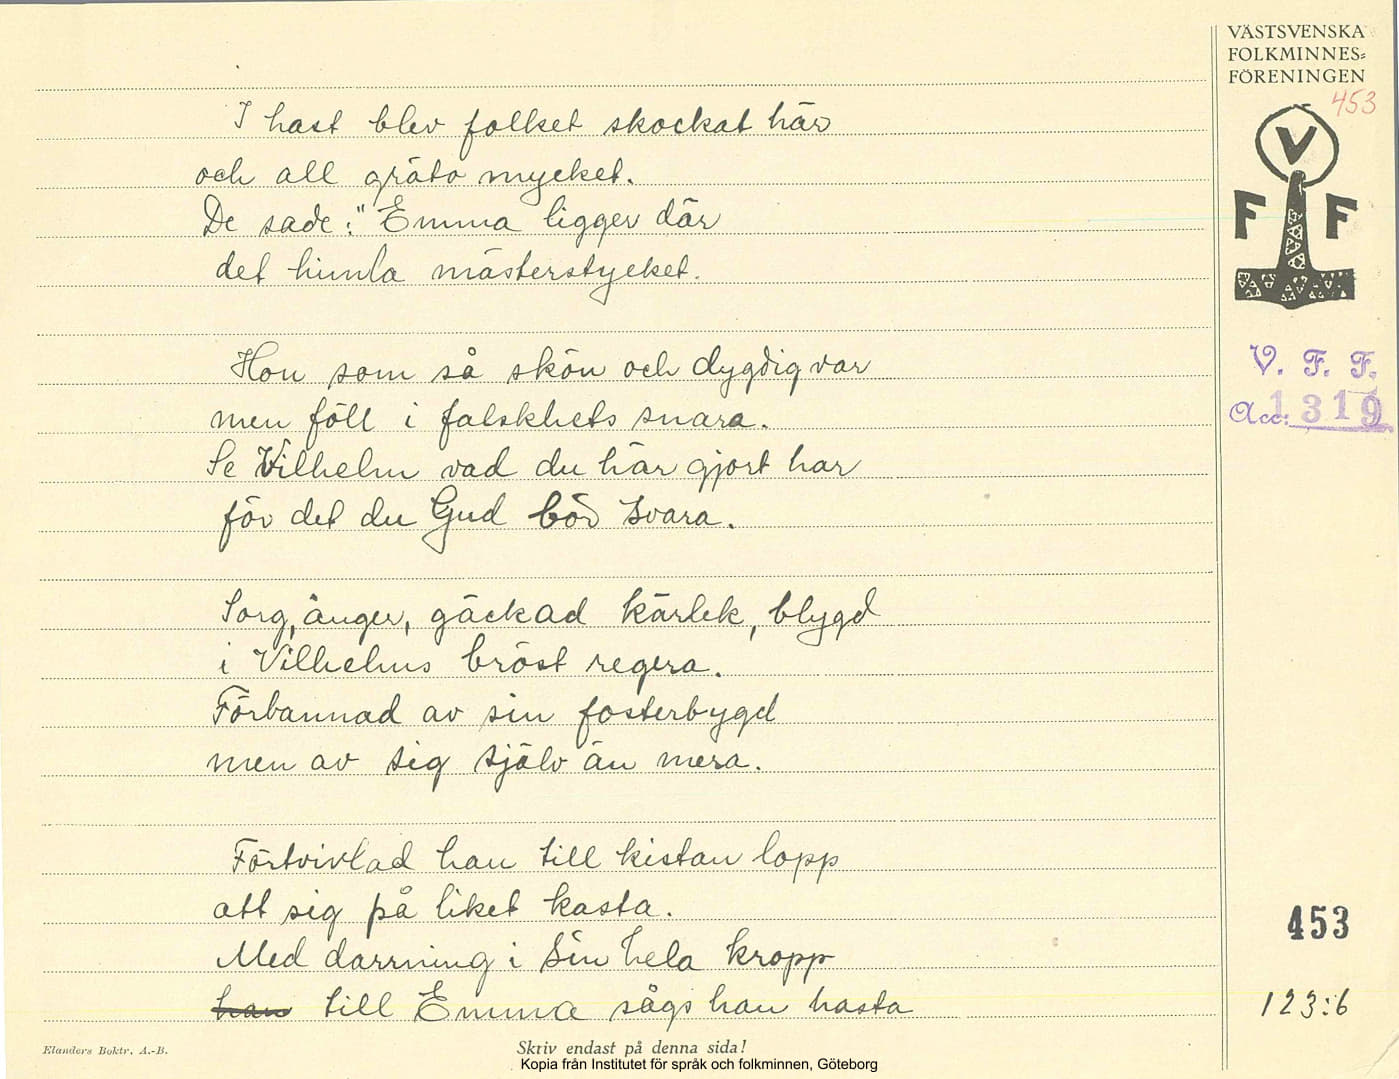 VÄSTSVENSKA
FOLKMINNES=
FÖRENINGEN
453
V
F F
V. F. F.
Acc: 1319
I hast blev folket skockat här
och all gräto mycket.
De sade: "Emma ligger där
det himla mästerstycket.
Hon som så skön och dygdig var
men föll i falskhets snara.
Se Vilhelm vad du här gjort har
för det du Gud bör svara.
Sorg, ånger, gäckad kärlek, blygd
i Vilhelms bröst regera.
Förbannad av sin fosterbygd
men av sig själv än mera.
Förtvivlad han till kistan lopp
att sig på liket kasta.
Med darrning i sin hela kropp
han till Emma sågs han hasta
453
123:6
Elanders Boktr. A.-B.
Skriv endast på denna sida!
Kopia från Institutet för språk och folkminnen, Göteborg